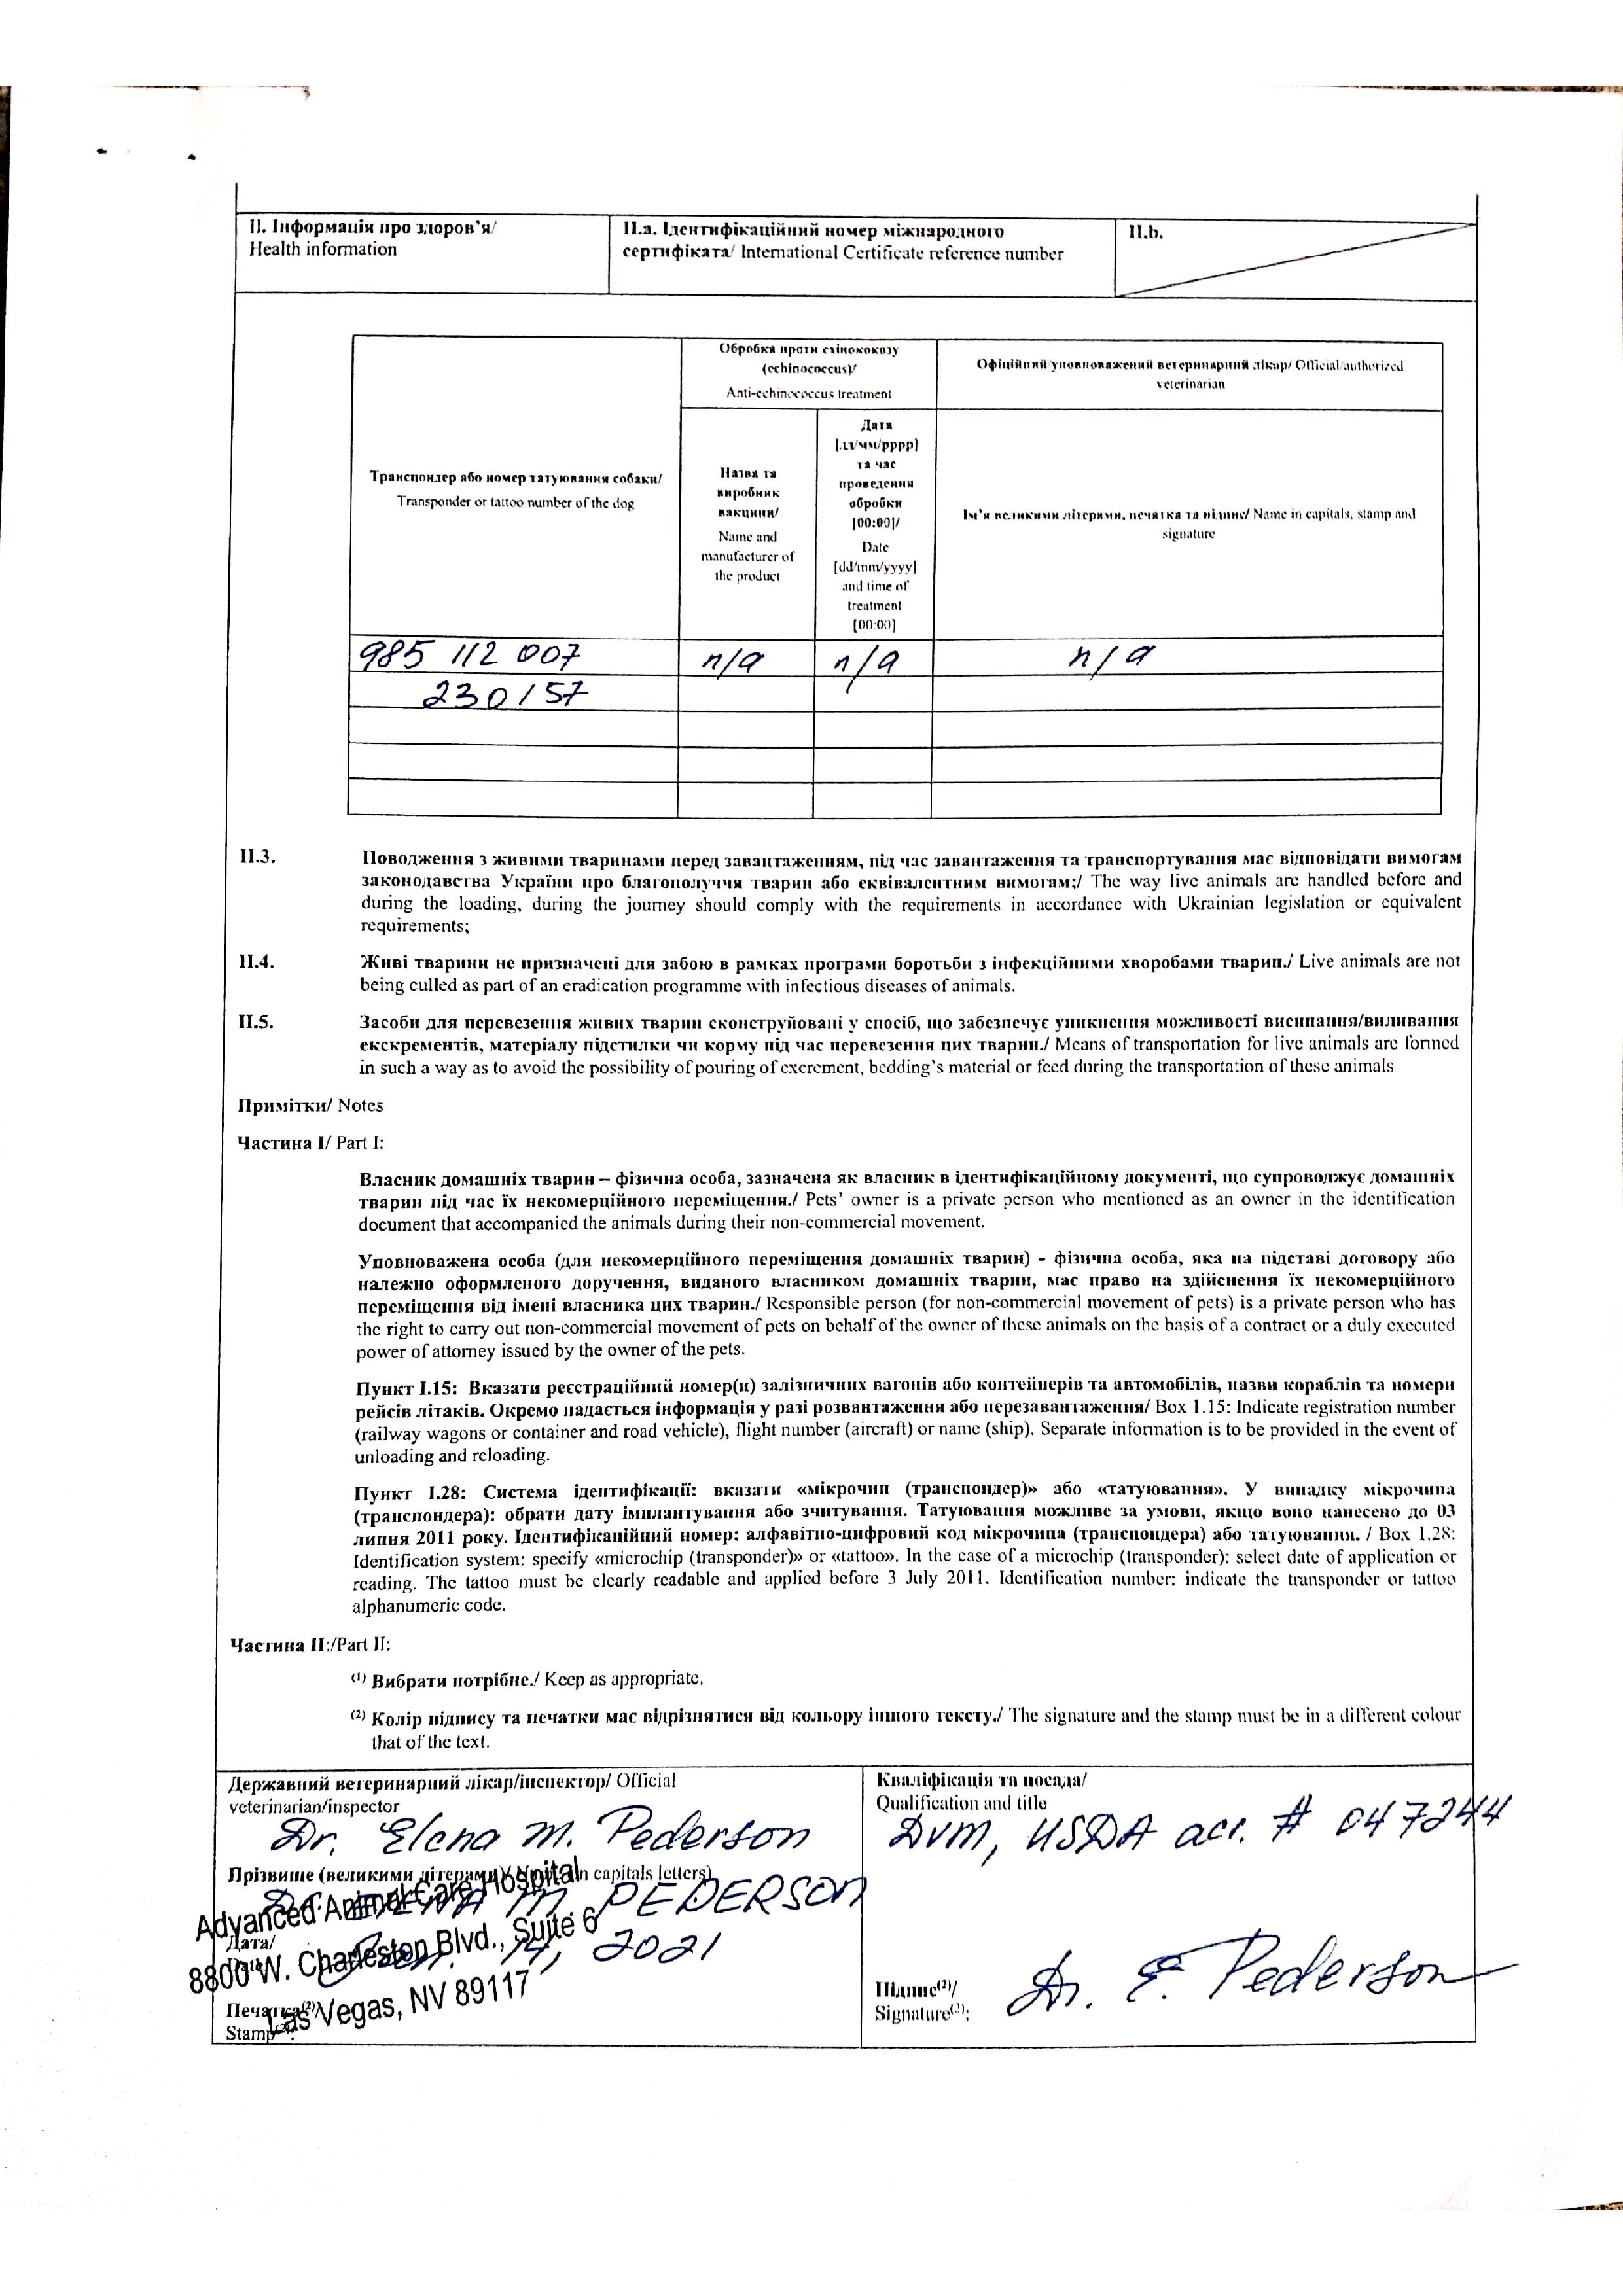 II. Інформація про здоров'я/
Health information
II.a. Ідентифікаційний номер міжнародного
сертифіката/ International Certificate reference number
II.b.
Транспондер або номер татуювання собаки/
Transponder or tattoo number of the dog
Обробка проти ехінококозу
(echinococcus)/
Anti-echinococcus treatment
Офіційний/уповноважений ветеринарний лікар/ Official/authorized
veterinarian
Назва та
виробник
вакцини/
Name and
manufacturer of
the product
Дата
[дд/мм/рррр]
та час
проведення
обробки
[00:00]/
Date
[dd/mm/yyyy]
and time of
treatment
[00:00]
Ім'я великими літерами, печатка та підпис/ Name in capitals, stamp and
signature
985 112 007 n/a n/a n/a
230157
II.3. Поводження з живими тваринами перед завантаженням, під час завантаження та транспортування має відповідати вимогам
законодавства України про благополуччя тварин або еквівалентним вимогам;/ The way live animals are handled before and
during the loading, during the journey should comply with the requirements in accordance with Ukrainian legislation or equivalent
requirements;
II.4. Живі тварини не призначені для забою в рамках програми боротьби з інфекційними хворобами тварин./ Live animals are not
being culled as part of an eradication programme with infectious diseases of animals.
II.5. Засоби для перевезення живих тварин сконструйовані у спосіб, що забезпечує уникнення можливості висипання/виливання
екскрементів, матеріалу підстилки чи корму під час перевезення цих тварин./ Means of transportation for live animals are formed
in such a way as to avoid the possibility of pouring of excrement, bedding's material or feed during the transportation of these animals
Примітки/ Notes
Частина I/ Part I:
Власник домашніх тварин – фізична особа, зазначена як власник в ідентифікаційному документі, що супроводжує домашніх
тварин під час їх некомерційного переміщення./ Pets' owner is a private person who mentioned as an owner in the identification
document that accompanied the animals during their non-commercial movement.
Уповноважена особа (для некомерційного переміщення домашніх тварин) - фізична особа, яка на підставі договору або
належно оформленого доручення, виданого власником домашніх тварин, має право на здійснення їх некомерційного
переміщення від імені власника цих тварин./ Responsible person (for non-commercial movement of pets) is a private person who has
the right to carry out non-commercial movement of pets on behalf of the owner of these animals on the basis of a contract or a duly executed
power of attorney issued by the owner of the pets.
Пункт I.15: Вказати реєстраційний номер(и) залізничних вагонів або контейнерів та автомобілів, назви кораблів та номери
рейсів літаків. Окремо надається інформація у разі розвантаження або перезавантаження/ Box 1.15: Indicate registration number
(railway wagons or container and road vehicle), flight number (aircraft) or name (ship). Separate information is to be provided in the event of
unloading and reloading.
Пункт I.28: Система ідентифікації: вказати «мікрочип (транспондер)» або «татуювання». У випадку мікрочипа
(транспондера): обрати дату імплантування або зчитування. Татуювання можливе за умови, якщо воно нанесено до 03
липня 2011 року. Ідентифікаційний номер: алфавітно-цифровий код мікрочипа (транспондера) або татуювання. / Box 1.28:
Identification system: specify «microchip (transponder)» or «tattoo». In the case of a microchip (transponder): select date of application or
reading. The tattoo must be clearly readable and applied before 3 July 2011. Identification number: indicate the transponder or tattoo
alphanumeric code.
Частина II:/Part II:
(1) Вибрати потрібне./ Keep as appropriate.
(2) Колір підпису та печатки має відрізнятися від кольору іншого тексту./ The signature and the stamp must be in a different colour
that of the text.
Державний ветеринарний лікар/інспектор/ Official
veterinarian/inspector
Dr. Elena M. Pederson
Прізвище (великими літерами)/ in capitals letters)
Dr. ELENA M. PEDERSON
Дата/
14, 2021
Печатка(2)/
Stamp
Advanced Animal Care Hospital
8800 W. Charleston Blvd., Suite 6
Las Vegas, NV 89117
Кваліфікація та посада/
Qualification and title
DVM, USDA acr. # 047244
Підпис(2)/
Signature(2):
Dr. E. Pederson